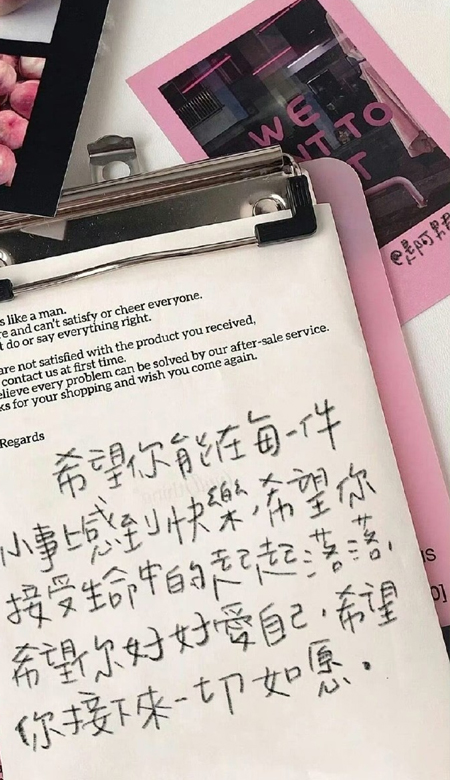 WE
TO
@
s like a man.
re and can't satisfy or cheer everyone.
t do or say everything right.
are not satisfied with the product you received,
contact us at first time.
elieve every problem can be solved by our after-sale service.
ks for your shopping and wish you come again.
Regards
希望你能在每一件
小事上感到快樂,希望你
接受生命中的起起落落,
希望你好好愛自己,希望
你接下來一切如愿.